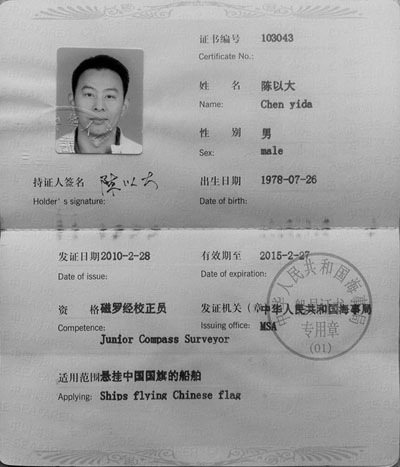 证书编号 103043
Certificate No.:
姓 名 陈以大
Name: Chen yida
性 别 男
Sex: male
持证人签名 陈以大
Holder's signature:
出生日期 1978-07-26
Date of birth:
发证日期2010-2-28
Date of issue:
有效期至 2015-2-27
Date of expiration:
资 格 磁罗经校正员
Competence: Junior Compass Surveyor
发证机关(章)中华人民共和国海事局
Issuing office: MSA
中华人民共和国海事局
船员证书
专用章
(01)
适用范围悬挂中国国旗的船舶
Applying: Ships flying Chinese flag